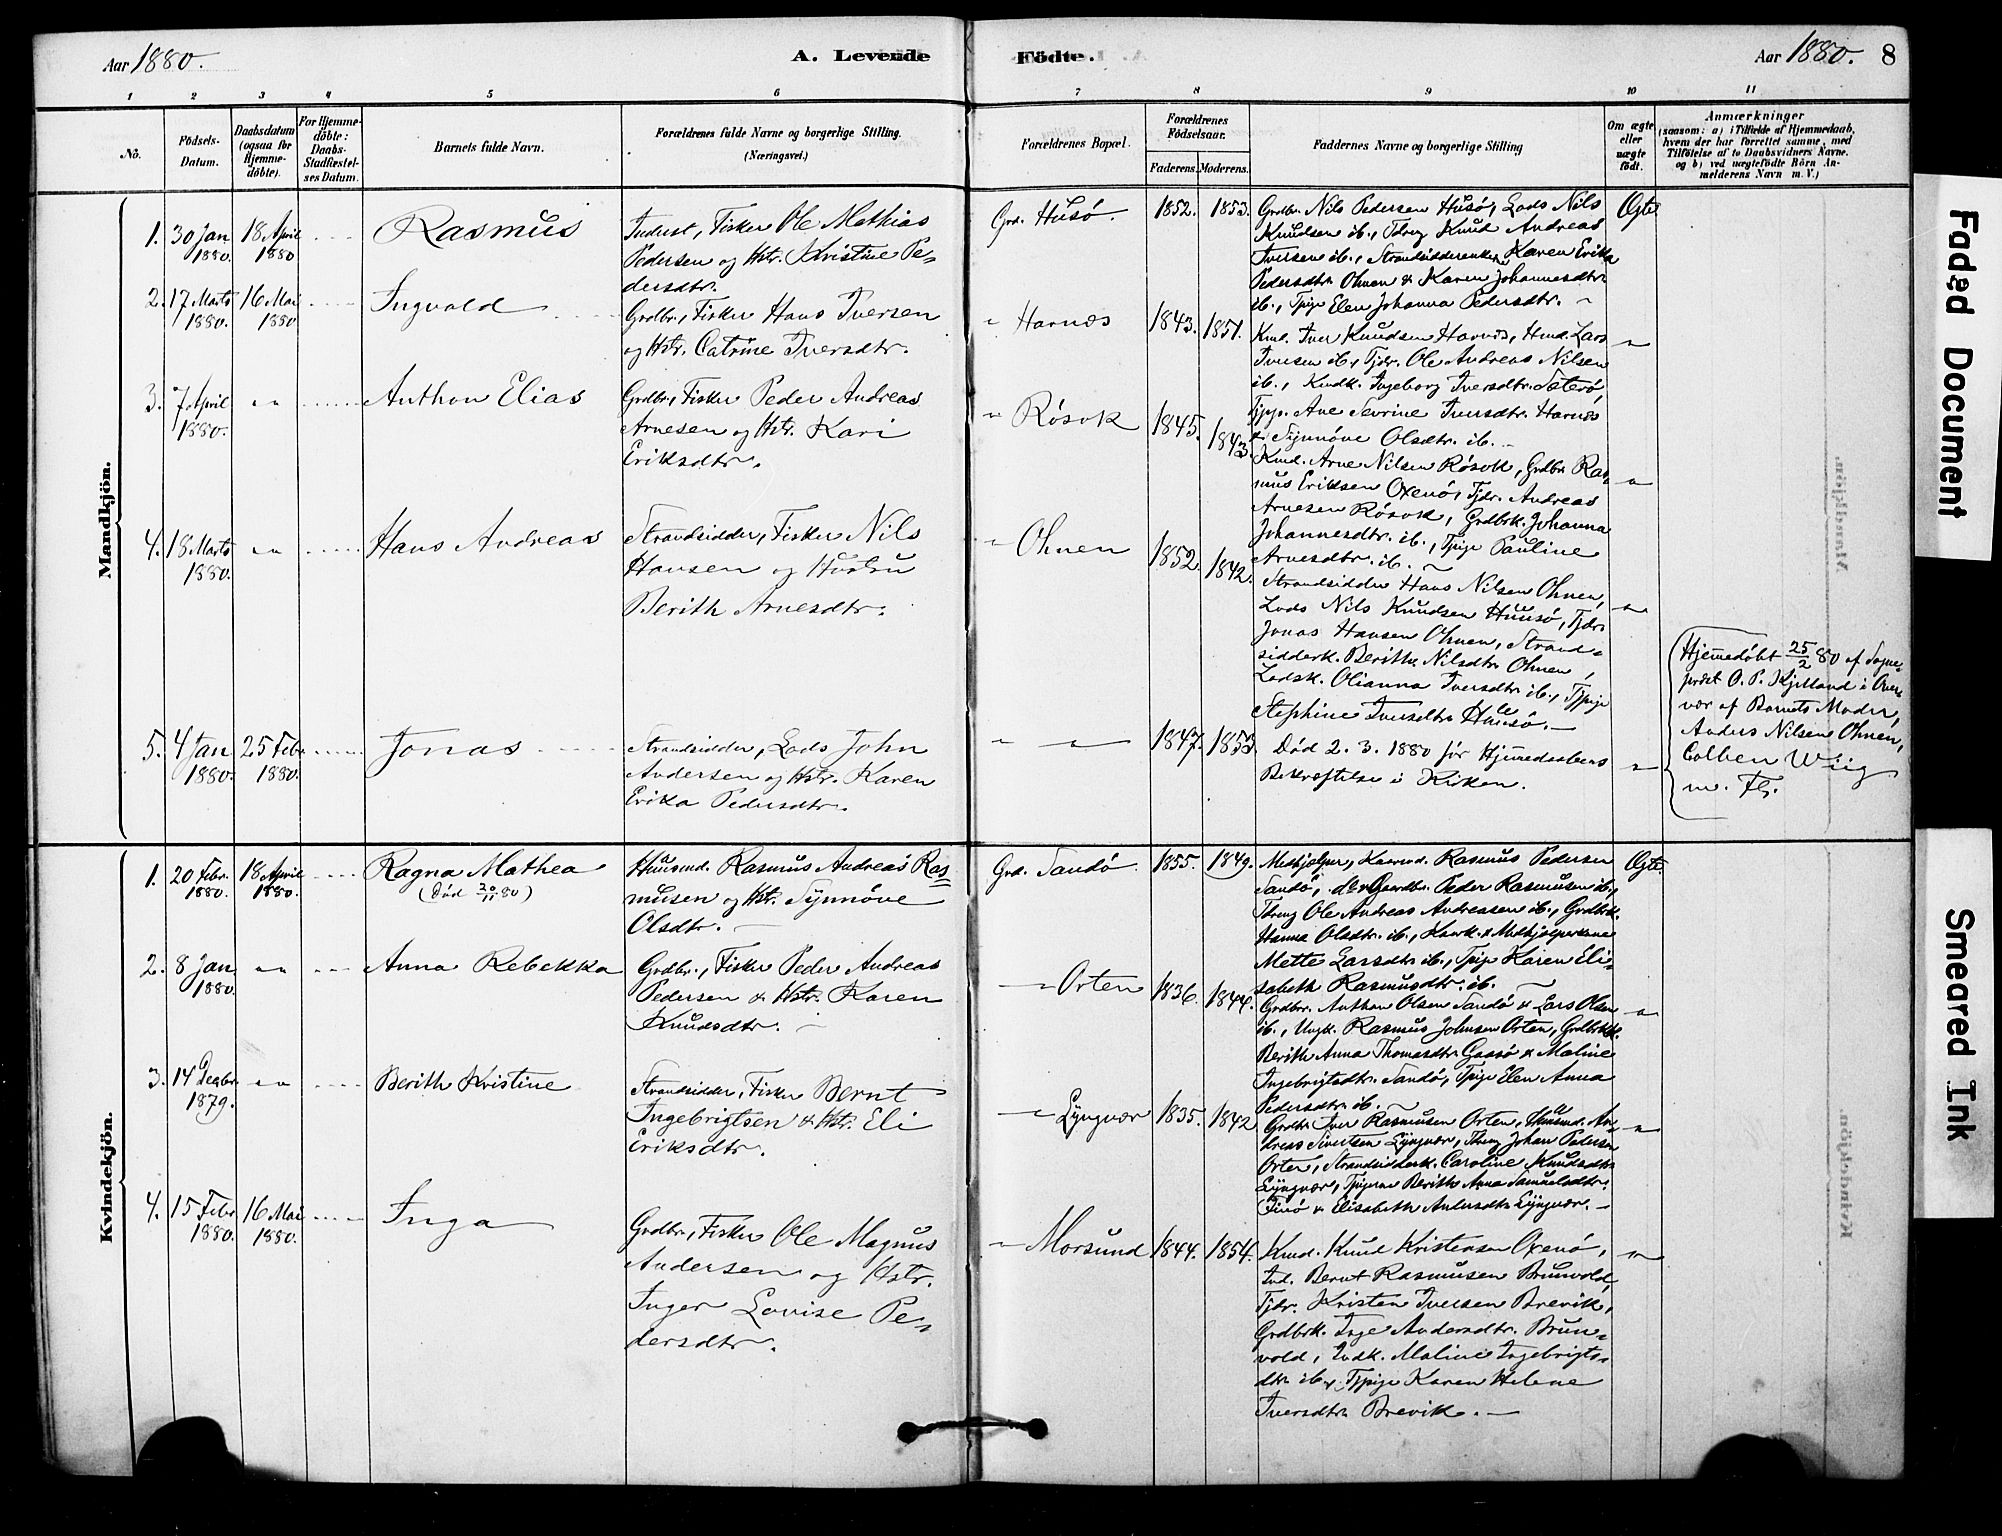 Aar 1880.
A. Levende
Födte.
Aar 1880. 8
1 2 3 4 5 6 7 8 9 10 11
No.
Födsels-
Datum.
Daabsdatum
(ogsaa for
Hjemme-
döbte).
For Hjemme-
döbte:
Daabs-
Stadfæstel-
ses Datum.
Barnets fulde Navn.
Forældrenes fulde Navne og borgerlige Stilling.
(Næringsvei.)
Forældrenes Bopæl.
Forældrenes
Födselsaar.
Faderens. Moderens.
Faddernes Navne og borgerlige Stilling
Om ægte
eller
uægte
födt.
Anmærkninger
(saasom: a) i Tilfælde af Hjemmedaab,
hvem der har forrettet samme, med
Tilföielse af to Daabsvidners Navne.
og b) ved uægtefödte Börn An-
melderens Navn m. V.)
Mandkjön.
1. 30 Jan
1880.
18 April
1880
Rasmus
Inderst, Fisker Ole Mathias
Pedersen og Hstr. Kristine Pe-
dersdtr.
Grd. Husö.
1852. 1853.
Grdbr. Nils Pedersen Husö, Lods Nils
Knudsen ib., Tdrng Knud Andreas
Iversen ib., Strandsidderenken Karen Erika
Pedersdtr. Ohnen & Karen Johannesdtr.
ib., Tpige Elen Johanna Pedersdtr.
Ægte
2. 17 Marts
1880.
16 Mai
1880
Ingvald
Grdbr., Fisker Hans Iversen
og Hstr. Catrine Iversdtr.
" Harnæs
1843. 1851.
Kml. Iver Knudsen Harnæs, Hmd. Lars
Iversen ib., Tjdr. Ole Andreas Nilsen
ib., Kmdk. Ingeborg Iversdtr. Saterö,
Tjpg. Ane Sevrine Iversdtr. Harnæs
& Synnöve Olsdtr. ib.
"
3. 7 April
1880.
" "
Anthon Elias
Grdbr., Fisker Peder Andreas
Arnesen og Hstr. Kari
Eriksdtr.
" Rösok
1845. 1843.
Kmd. Arne Nilsen Rösok, Grdbr. Ras-
mus Eriksen Oxenö, Tjdr. Andreas
Arnesen Rösok, Grdbrk. Johanna
Johannesdtr. ib., Tpige Pauline
Arnesdtr. ib.
"
4. 18 Marts
1880.
" "
Hans Andreas
Strandsidder, Fisker Nils
Hansen og Hustru
Berith Arnesdtr.
" Ohnen
1852. 1842.
Strandsidder Hans Nilsen Ohnen,
Lods Nils Knudsen Huusö, Tjdr.
Jonas Hansen Ohnen, Strand-
sidderk. Berithe Nilsdtr. Ohnen,
Lodsk. Olianna Iversdtr. ib., Tjpige
Stephine Iversdtr. Huusö.
"
5. 4 Jan
1880.
25 Febr.
1880.
Jonas
Strandsidder, Lods John
Andersen og Hstr. Karen
Erika Pedersdtr.
" "
1847. 1853.
Död 2. 3. 1880 för Hjemmedaabens
Bekræftelse i Kirken.
"
Hjemedöbt 25/2 80 af Sogne-
præst O. P. Kjelland i Over-
vær af Barnets Moder,
Anders Nilsen Ohnen,
Colben Wiig
m. Fl.
Kvindekjön.
1. 20 Febr.
1880.
18 April
1880.
Ragna Mathea
(Död 20/11 80)
Huusmd. Rasmus Andreas Ras-
musen og Hstr. Synnöve
Olsdtr.
Grd. Sandö.
1855. 1849.
Medhjælper, Kaarmd. Rasmus Pedersen
Sandö, do & Gaardbr. Peder Rasmusen ib.,
Tdreng Ole Andreas Andreasen ib., Grdbrk.
Hanna Olsdtr. ib., Kaark. & Medhjælperkone
Mette Larsdtr. ib., Tpige Karen Eli-
sabeth Rasmusdtr. ib.
Ægte
2. 8 Jan.
1880.
" "
Anna Rebekka
Grdbr., Fisker Peder Andreas
Pedersen & Hstr. Karen
Knudsdtr.
" Orten
1836. 1844.
Grdbr. Anthon Olsen Sandö & Lars Olsen
ib., Ungk. Rasmus Johnsen Orten, Grdbrk.
Berith Anna Thomasdtr. Gaasö & Maline
Ingebrigtsdtr. Sandö, Tpige Elen Anna
Pedersdtr. ib.
"
3. 14 Decbr.
1879.
" "
Berith Kristine
Strandsidder, Fisker Bernt
Ingebrigtsen & Hstr. Eli
Eriksdtr.
" Lyngvær
1835. 1842
Grdbr. Iver Rasmusen Orten, Huusmd. An-
dreas Sivertsen Lyngvær, Tdreng Johan Pedersen
Orten, Strandsidderk. Caroline Knudsdtr.
Lyngvær, Tpigerne Berith Anna Samuelsdtr.
Finö & Elisabeth Andersdtr. Lyngvær.
"
4. 15 Febr.
1880.
16 Mai
1880.
Inga
Grdbr., Fisker Ole Magnus
Andersen og Hstr.
Inger Lovise Pe-
dersdtr.
" Morsund
1844. 1854.
Kmd. Knud Kristensen Oxenö,
Ind. Bernt Rasmusen Brunvold,
Tjdr. Kristen Iversen Brevik,
Grdbrk. Inge Andersdtr. Brun-
vold, Indk. Maline Ingebrigts-
dtr. ib., Tjpige Karen Helene
Iversdtr. Brevik.
"
Faded Document
Smeared Ink